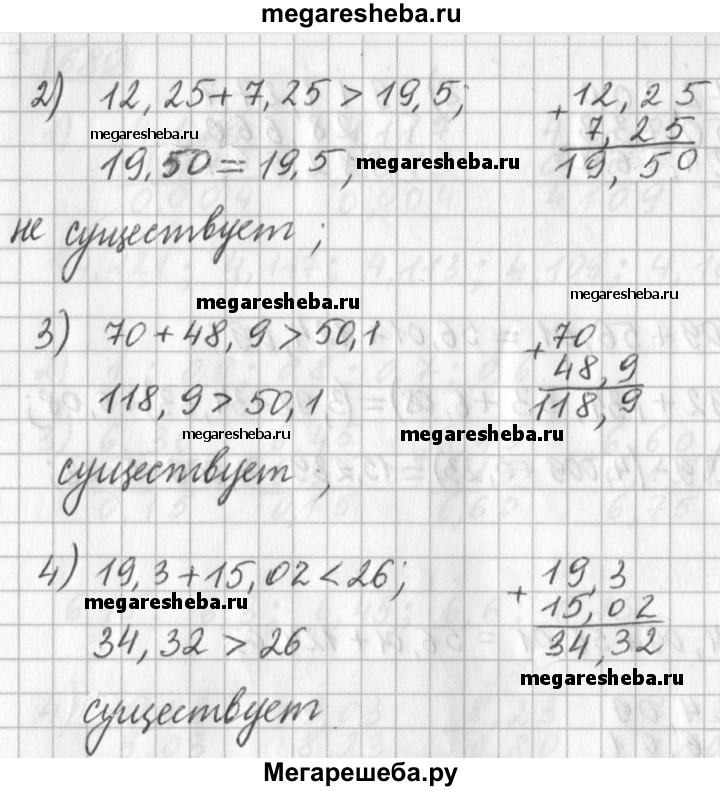 megaresheba.ru
2) 12,25+7,25 > 19,5; +12,25
megaresheba.ru 7,25
19,50 = 19,5; megaresheba.ru 19,50
не существует;
megaresheba.ru megaresheba.ru
3) 70+48,9 > 50,1 +70
48,9
118,9 > 50,1 118,9
megaresheba.ru megaresheba.ru
существует;
4) 19,3+15,02 < 26; +19,3
megaresheba.ru 15,02
34,32 > 26 34,32
megaresheba.ru
существует.
Мегарешеба.ру